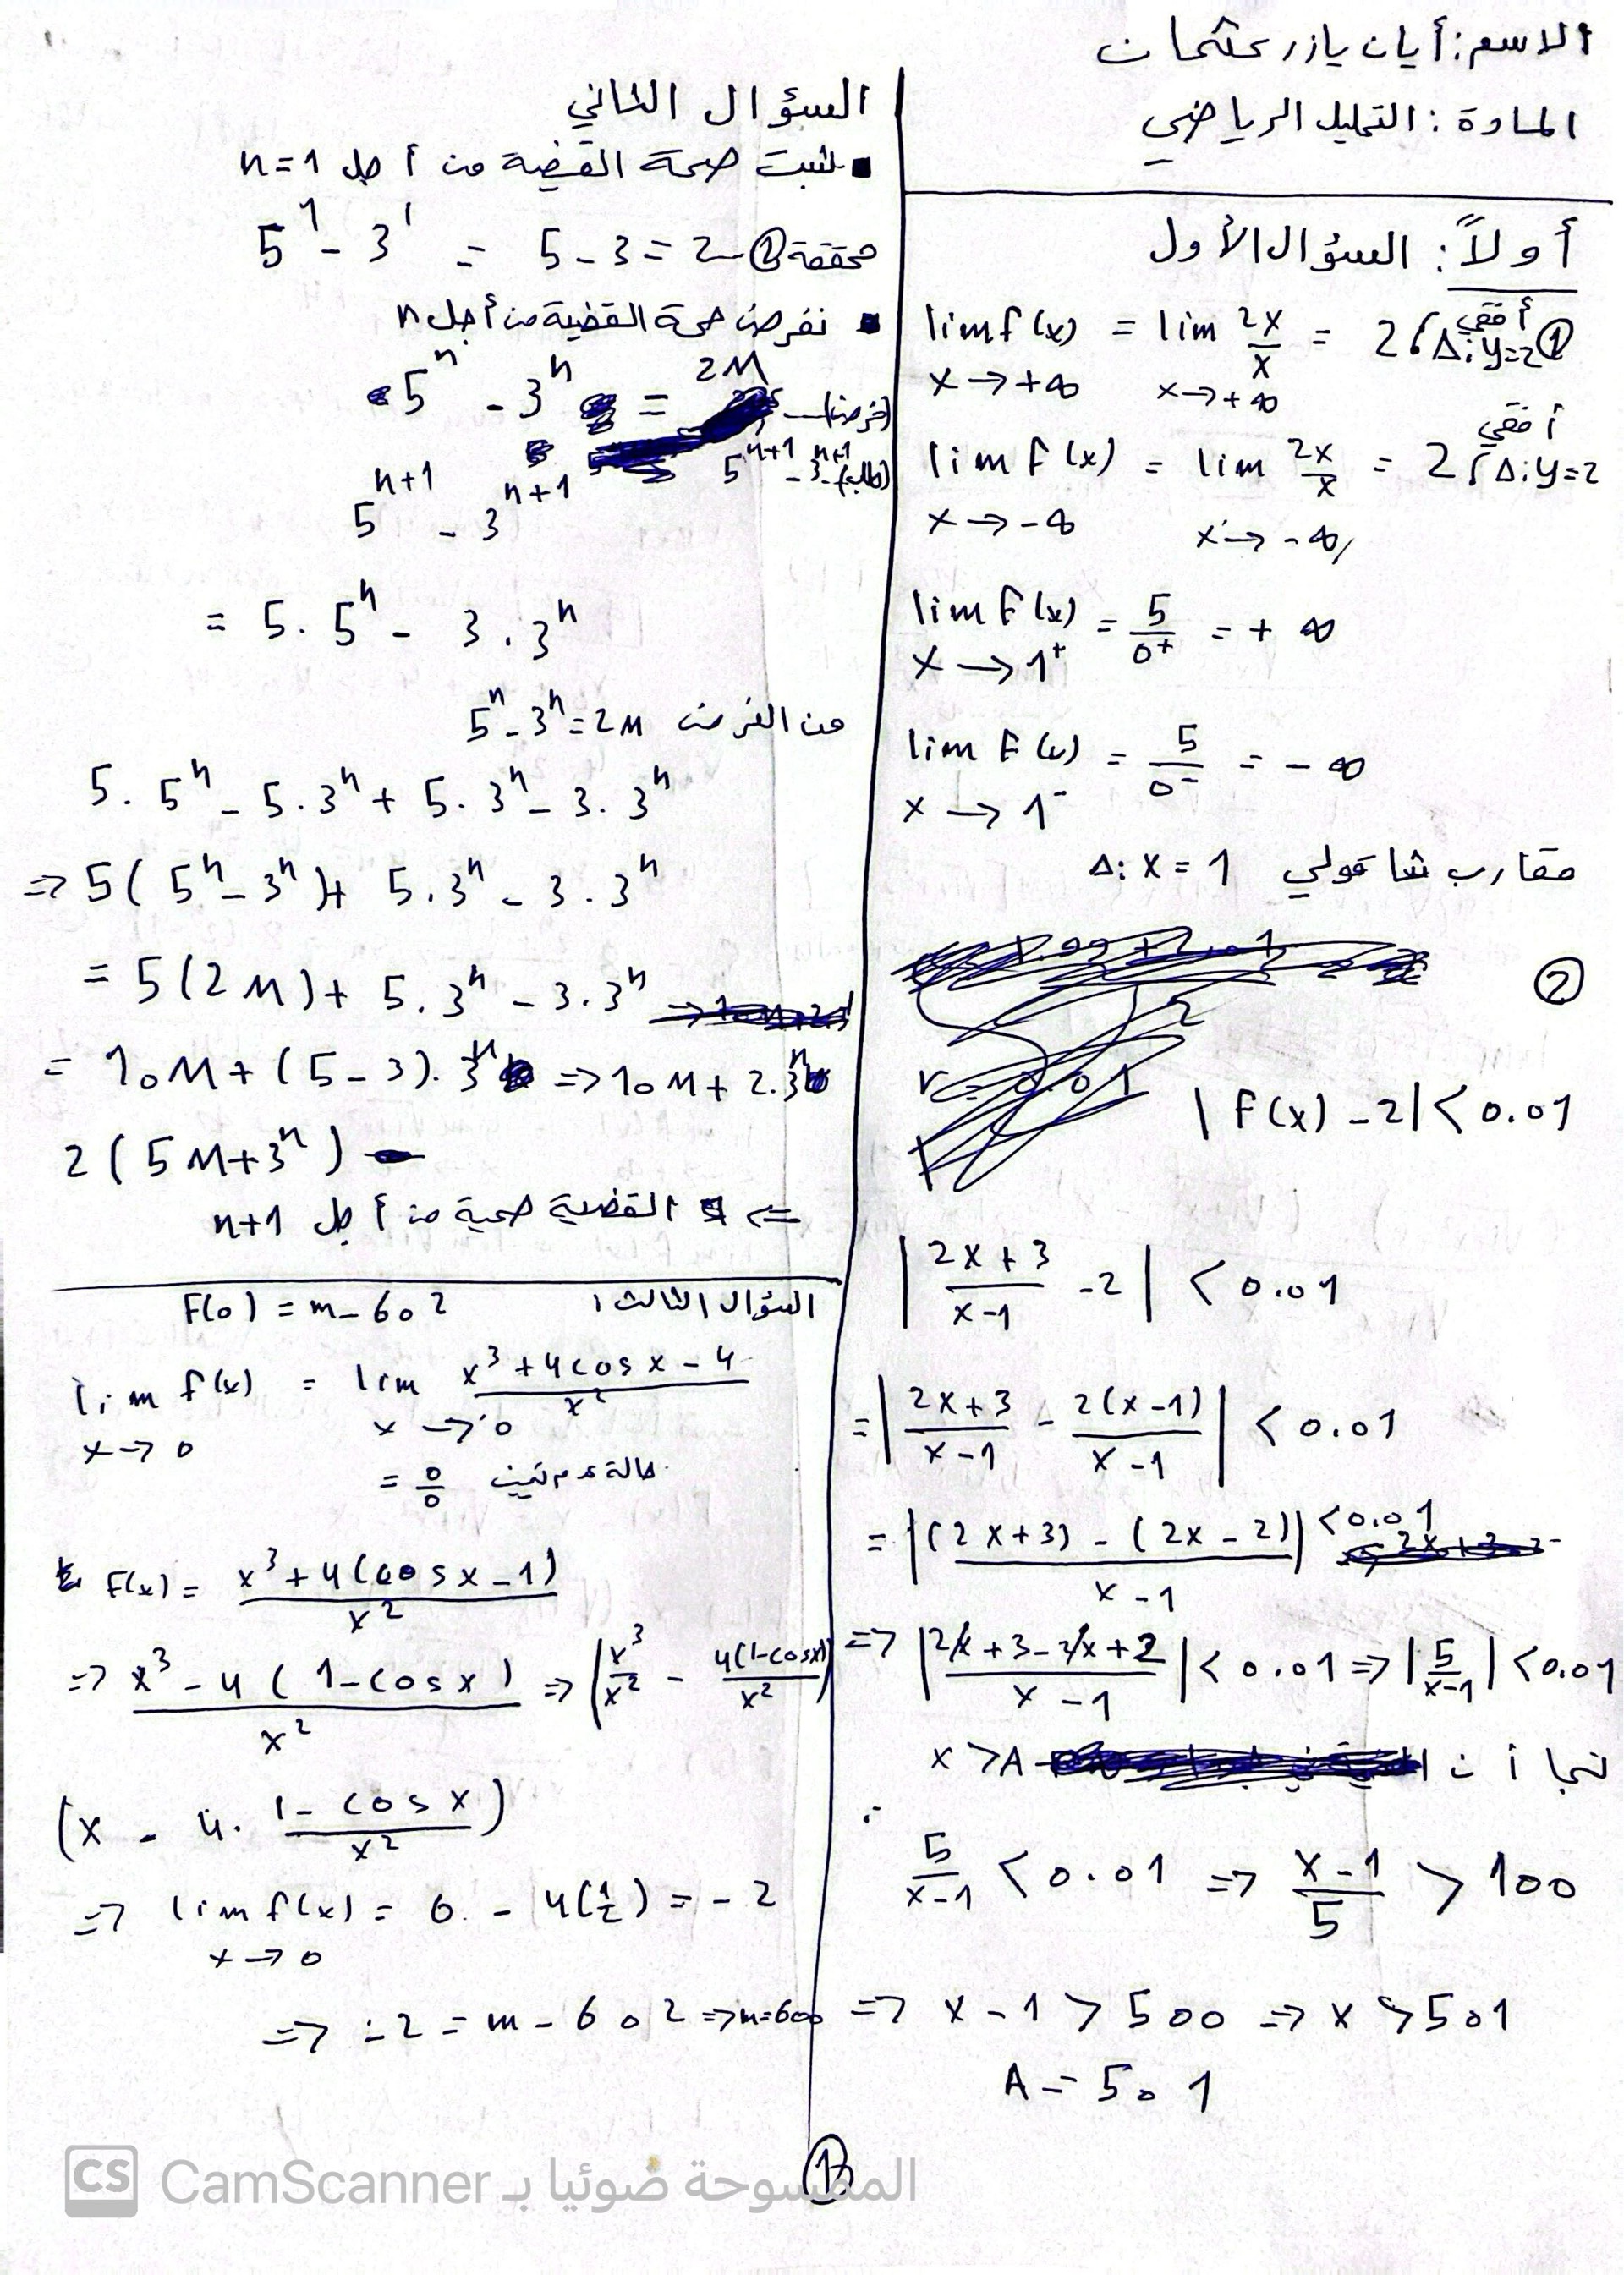 الاسم: أيان يازر عثمان
المادة: التحليل الرياضي
أولاً: السؤال الأول
① lim f(x) = lim 2x/x = 2 , Δ: y=2 أفقي
x→+∞ x→+∞
lim f(x) = lim 2x/x = 2 , Δ: y=2 أفقي
x→-∞ x→-∞
lim f(x) = 5/0⁺ = +∞
x→1⁺
lim f(x) = 5/0⁻ = -∞
x→1⁻
مقارب شاقولي Δ: x = 1
②
|f(x) - 2| < 0.01
|(2x+3)/(x-1) - 2| < 0.01
= |(2x+3)/(x-1) - 2(x-1)/(x-1)| < 0.01
= |((2x+3) - (2x-2))/(x-1)| < 0.01
⇒ |(2x+3-2x+2)/(x-1)| < 0.01 ⇒ |5/(x-1)| < 0.01
بما أن x > A
5/(x-1) < 0.01 ⇒ (x-1)/5 > 100
⇒ x - 1 > 500 ⇒ x > 501
A = 501
السؤال الثاني
▪ لنثبت صحة القضية من أجل n=1
5¹ - 3¹ = 5 - 3 = 2 محققة
▪ نفرض صحة القضية من أجل n
5ⁿ - 3ⁿ = 2M (فرض)
5ⁿ⁺¹ - 3ⁿ⁺¹ (طلب)
5ⁿ⁺¹ - 3ⁿ⁺¹
= 5.5ⁿ - 3.3ⁿ
من الفرض 5ⁿ - 3ⁿ = 2M
5.5ⁿ - 5.3ⁿ + 5.3ⁿ - 3.3ⁿ
⇒ 5(5ⁿ - 3ⁿ) + 5.3ⁿ - 3.3ⁿ
= 5(2M) + 5.3ⁿ - 3.3ⁿ
= 10M + (5-3).3ⁿ ⇒ 10M + 2.3ⁿ
2(5M+3ⁿ)
⇐ القضية صحيحة من أجل n+1
السؤال الثالث: F(0) = m - 602
lim f(x) = lim (x³ + 4cosx - 4)/x²
x→0 x→0
= 0/0 حالة عدم تعيين
F(x) = (x³ + 4(cosx - 1))/x²
⇒ (x³ - 4(1 - cosx))/x² ⇒ (x³/x² - 4(1-cosx)/x²)
(x - 4. (1 - cosx)/x²)
⇒ lim f(x) = 0 - 4(1/2) = -2
x→0
⇒ -2 = m - 602 ⇒ m=600
①
CS CamScanner الممسوحة ضوئيا بـ